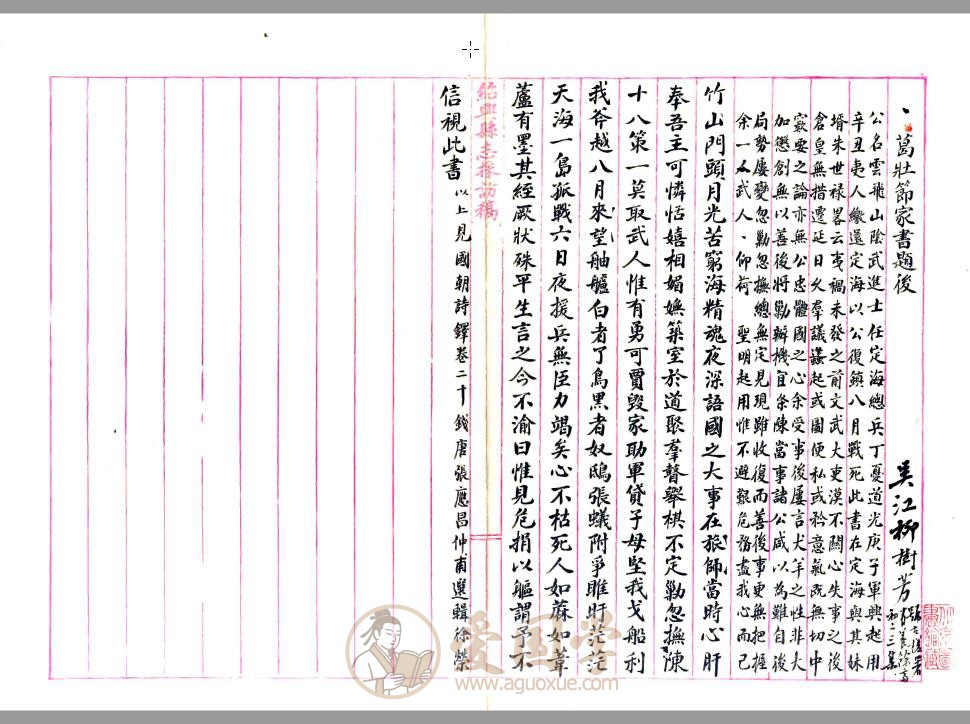 葛壯節家書題後
吳江柳樹芳
公名雲飛山陰武進士任定海總兵丁憂道光庚子軍興起用
辛丑夷人繳還定海以公復鎮八月戰死此書在定海與其妹
壻朱世祿畧云夷禍未發之前文武大吏漠不關心失事之後
倉皇無措遷延日久羣議蠭起或圖便私或矜意氣旣無切中
窾要之論亦無公忠體國之心余受事後屢言犬羊之性非大
加懲創無以善後將勦辦機宜条陳當事諸公咸以為難自後
局勢屢變忽勦忽撫總無定見現雖收復而善後事更無把握
余一介武人、仰荷 聖明起用惟不避艱危務盡我心而已
竹山門頭月光苦窮海精魂夜深語國之大事在旅師當時心肝
奉吾主可憐恬嬉相媚嫵築室於道聚羣瞽舉棋不定勦忽撫陳
十八策一莫取武人惟有勇可賈毀家助軍貸子母堅我戈船利
我斧越八月來望舳艫白者了鳥黑者奴鴟張蟻附爭睢盱茫茫
天海一島孤戰六日夜援兵無臣力竭矣心不枯死人如蔴如葦
蘆有墨其絰厥狀殊平生言之今不渝曰惟見危捐以軀謂予不
紹興縣志採訪稿
信視此書 以上見國朝詩鐸卷二十錢唐張應昌仲甫選輯徐榮
爱国学
www.aguoxue.com